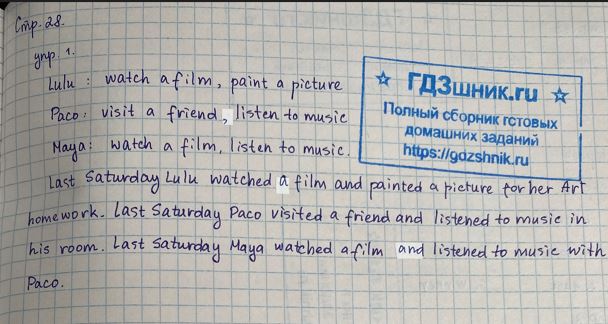 Стр. 28.
упр. 1.
Lulu : watch a film, paint a picture
Paco: visit a friend, listen to music
Maya: watch a film, listen to music.
Last Saturday Lulu watched a film and painted a picture for her Art
homework. Last Saturday Paco visited a friend and listened to music in
his room. Last Saturday Maya watched a film and listened to music with
Paco.
☆ ГДЗшник.ru ☆
Полный сборник готовых
домашних заданий
https://gdzshnik.ru